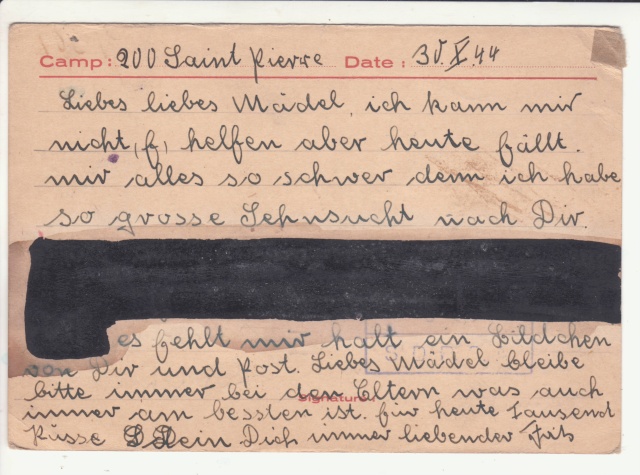 Camp: 200 Saint Pierre Date: 30.X.44
Liebes liebes Mädel, ich kann mir
nicht, helfen aber heute fällt.
mir alles so schwer denn ich habe
so grosse Sehnsucht nach Dir.
es fehlt mir halt ein Bildchen
von Dir und Post. Liebes Mädel bleibe
bitte immer bei den Eltern was auch
immer am bessten ist. für heute tausend
Signature:
Küsse Dein Dich immer liebender Fritz